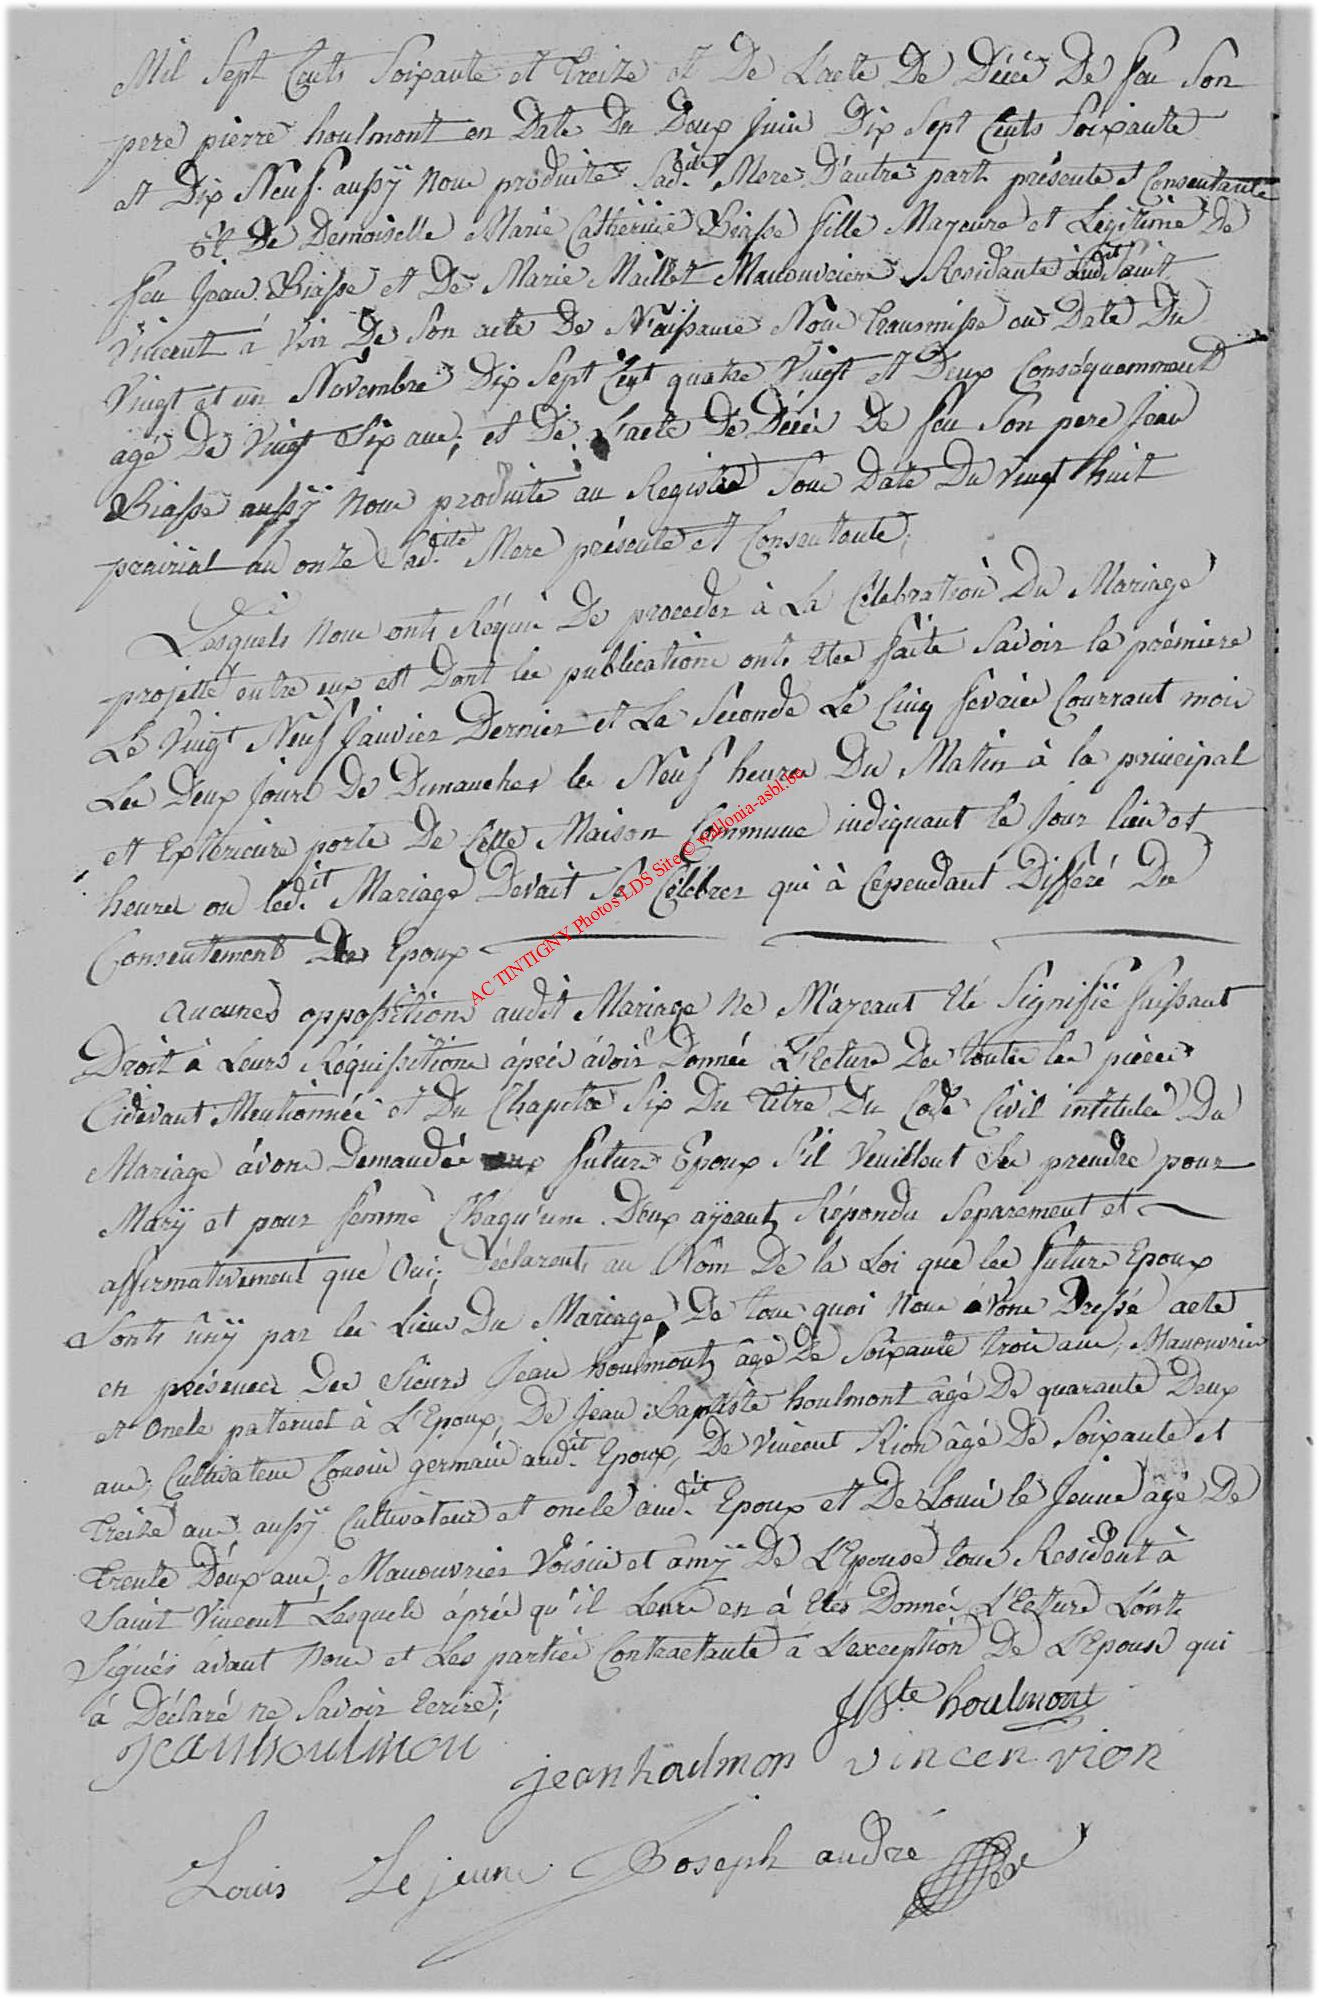 Mil Sept Cents Soixante et Treize et De L'acte De Décé De feu Son
pere pierre houlmont en Date Du Deux Juin Dix Sept Cents Soixante
et Dix Neuf aussÿ Nous produite Sad.ite Mere D'autre part présente et Consentante
Et De Demoiselle Marie Catherine Biasse fille Mayeure et Légitime De
feu Jean Biasse et De Marie Maillet Manouvriere Residante aud.it Saint
Vincent à Voir De Son acte De Naissance Nous Transmisse en Date Du
Vingt et un Novembre Dix Sept Cent quatre Vingt et Deux Conséquamment
agé De Vingt Six ans; et De L'acte De Décès De feu Son pere Jean
Biasse aussÿ Nous produite au Registre Sous Date Du Vingt huit
prairial an onze Sad.ite Mere présente et Consentante;
Lesquels Nous onts Réquis De proceder à La Célebration Du Mariage
projetté entre eux est Dont les publications onts Etée faite Savoir la prémiere
Le Vingt Neuf Janvier Dernier et La Séconde Le Cinq fevrier Courrant mois
Les Deux Jours De Dimanches les Neuf heures Du Matin à la principal
et Extérieure porte De Cette Maison Commune indiquant le Jour lieu et
heures ou led.it Mariage Devait Se Célébrer qui à Cependant Différé Du
Consentement Des Epoux
Aucunes oppositions audit Mariage Ne M'ayeant Eté Signifië faissant
Droit à Leurs Réquisitions áprés ávoir Donnée L'Ecture De toutes les pièces
Cidevant Mentionnée et Du Chapitre Six Du Titre Du Code Civil intitulée Du
Mariage ávons Demandée aux futurs Epoux S'il Veuillent Se prendre pour
Marÿ et pour femme Chaqu'une D'eux aÿeant Répondu Séparement et
affirmativement que Oui; Déclarons au Nom De la Loi que les futurs Epoux
Sonts ûnÿ par les Liens Du Mariage, De tous quoi Nous ávons Dressé acte
en présence Des Sieurs Jean houlmont âgé De Soixante trois ans, Manouvrier
et Oncle paternel à L'Epoux, De Jean Baptiste houlmont âgé De quarante Deux
ans; Cultivateur Cousin germain aud.it Epoux, De Vincent Rion âgé De Soixante et
Treize ans aussÿ Cultivateur et oncle aud.it Epoux et De Louis le Jeune âgé De
Trente Deux ans; Manouvrier Voisin et amÿ De L'Epouse tous Resident à
Saint Vincent Lesquels áprés qu'il Leurs en à Etés Donné L'Ecture L'ont
Signés avant Nous et Les parties Contractante a L'exception De L'Epouse qui
à Déclaré ne Savoir Ecrire;
JBte houlmont
Jeanhoulmon
jeanhoulmon vincen rion
Louis Le jeune Joseph andré
AC TINTIGNY Photos LDS Site © wallonia-asbl.be